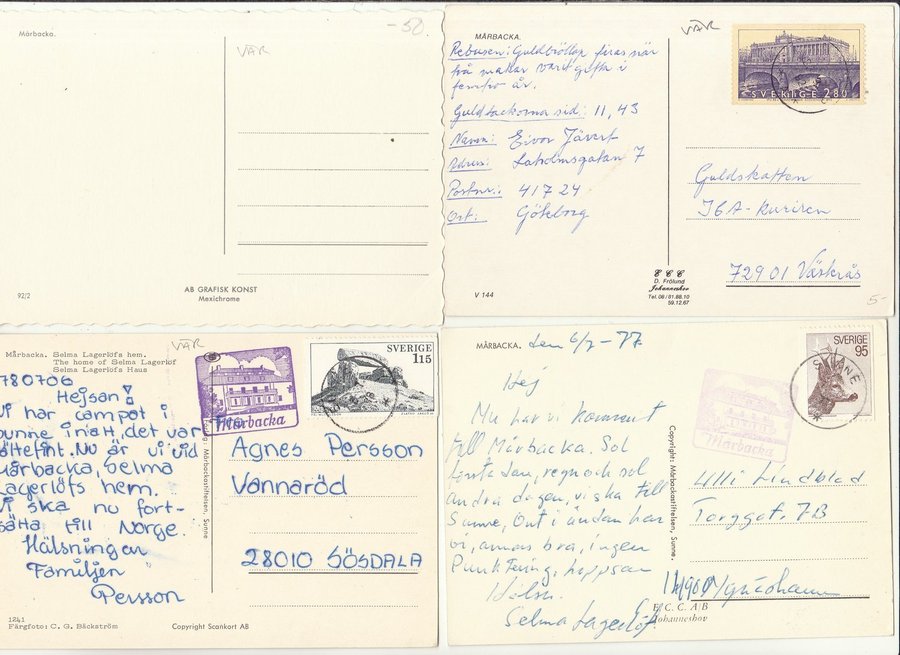 Mårbacka.
VÄR
-50.
92/2
AB GRAFISK KONST
Mexichrome
MÅRBACKA.
VÄR
Rebusen: Guldbröllop firas när
två makar varit gifta i
femtio år.
Guldtackorna sid: 11, 43
Namn: Eivor Jävert
Adress: Laholmsgatan 7
Postnr.: 417 24
Ort: Göteborg
SVERIGE 2.80
Guldskatten
ICA-Kuriren
729 01 Västerås
V 144
E C C
D. Frölund
Johanneshov
Tel. 08/81.88.10
59.12.67
5-
Mårbacka. Selma Lagerlöfs hem.
The home of Selma Lagerlöf
Selma Lagerlöfs Haus
VÄR
780706
Hejsan!
Vi har campat i
Sunne inatt, det var
jättefint. Nu är vi vid
Mårbacka, Selma
Lagerlöfs hem.
Vi ska nu fort-
sätta till Norge.
Hälsningar
Familjen
Persson
1241
Färgfoto: C. G. Bäckström
Copyright Scankort AB
Förlag: Mårbackastiftelsen, Sunne
Mårbacka
SVERIGE
115
Agnes Persson
Vannaröd
28010 SÖSDALA
MÅRBACKA.
den 6/7 - 77
Hej
Nu har vi kommit
till Mårbacka. Sol
första dan, regn och sol
andra dagen, vi ska till
Sunne. Ont i ändan har
vi, annars bra, ingen
Punktering, hoppsan
Hälsn.
Selma Lagerlöf.
Copyright: Mårbackastiftelsen, Sunne.
Mårbacka
SVERIGE
95
SUNNE
Ulli Lindblad
Torggat. 7B
E.C.C. A B
Johanneshov